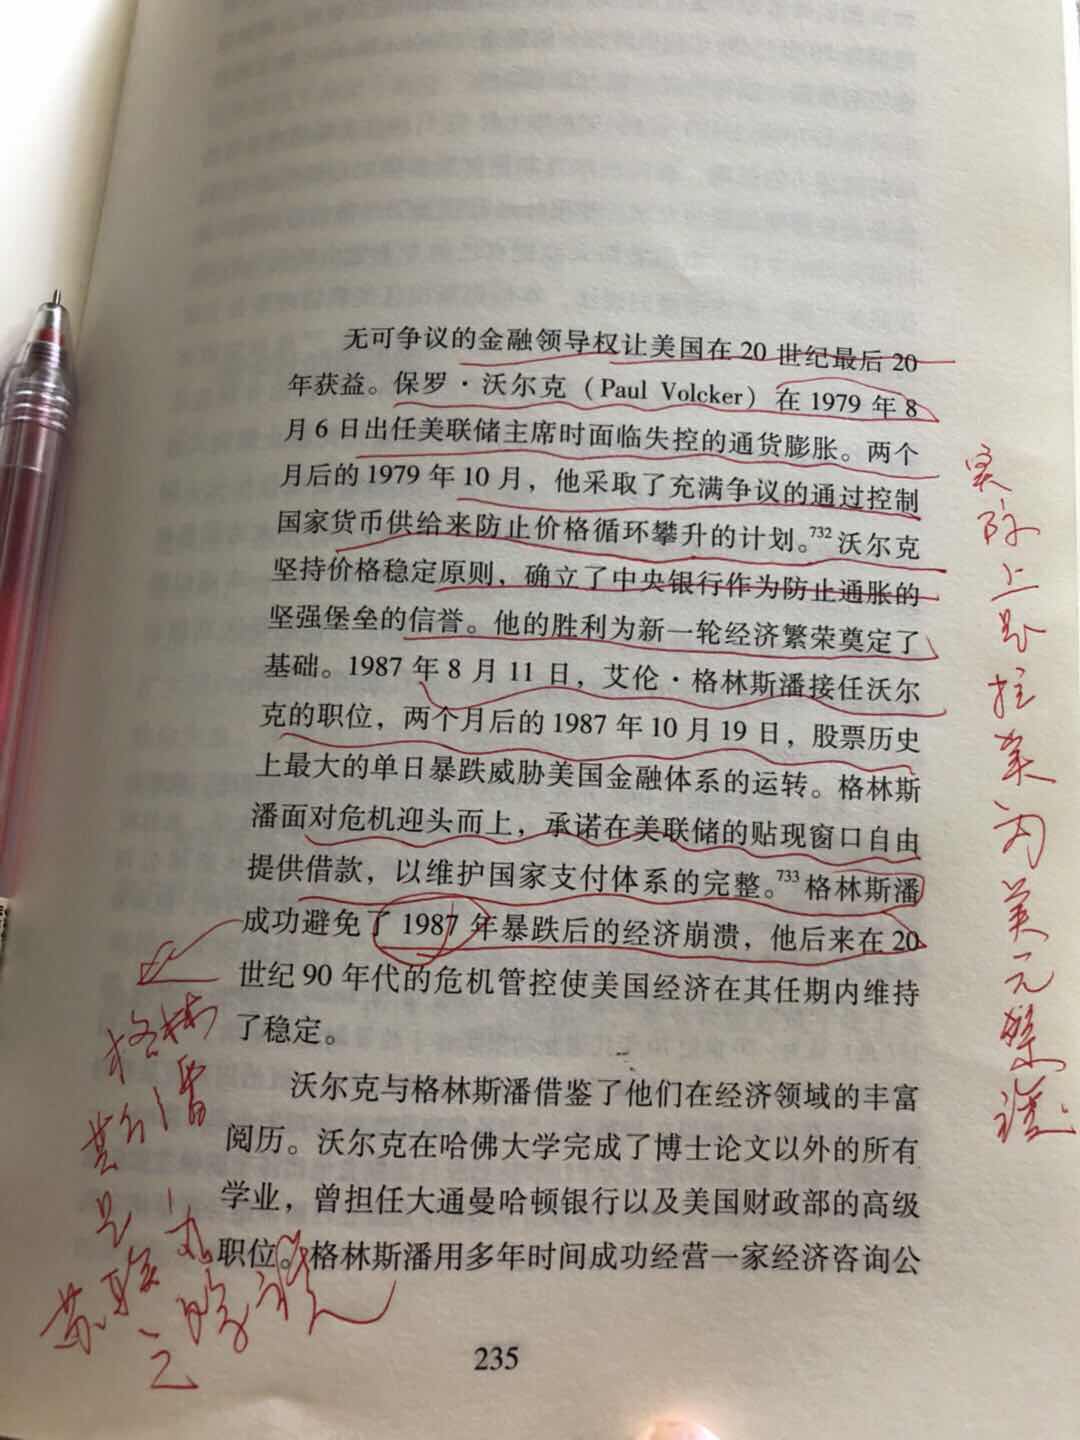 无可争议的金融领导权让美国在20世纪最后20
年获益。保罗·沃尔克（Paul Volcker）在1979年8
月6日出任美联储主席时面临失控的通货膨胀。两个
月后的1979年10月，他采取了充满争议的通过控制
国家货币供给来防止价格循环攀升的计划。732沃尔克
坚持价格稳定原则，确立了中央银行作为防止通胀的
坚强堡垒的信誉。他的胜利为新一轮经济繁荣奠定了
基础。1987年8月11日，艾伦·格林斯潘接任沃尔
克的职位，两个月后的1987年10月19日，股票历史
上最大的单日暴跌威胁美国金融体系的运转。格林斯
潘面对危机迎头而上，承诺在美联储的贴现窗口自由
提供借款，以维护国家支付体系的完整。733格林斯潘
成功避免了1987年暴跌后的经济崩溃，他后来在20
世纪90年代的危机管控使美国经济在其任期内维持
了稳定。
沃尔克与格林斯潘借鉴了他们在经济领域的丰富
阅历。沃尔克在哈佛大学完成了博士论文以外的所有
学业，曾担任大通曼哈顿银行以及美国财政部的高级
职位。格林斯潘用多年时间成功经营一家经济咨询公
235
实际上是拉美为美元
格林
斯潘
是
苏联